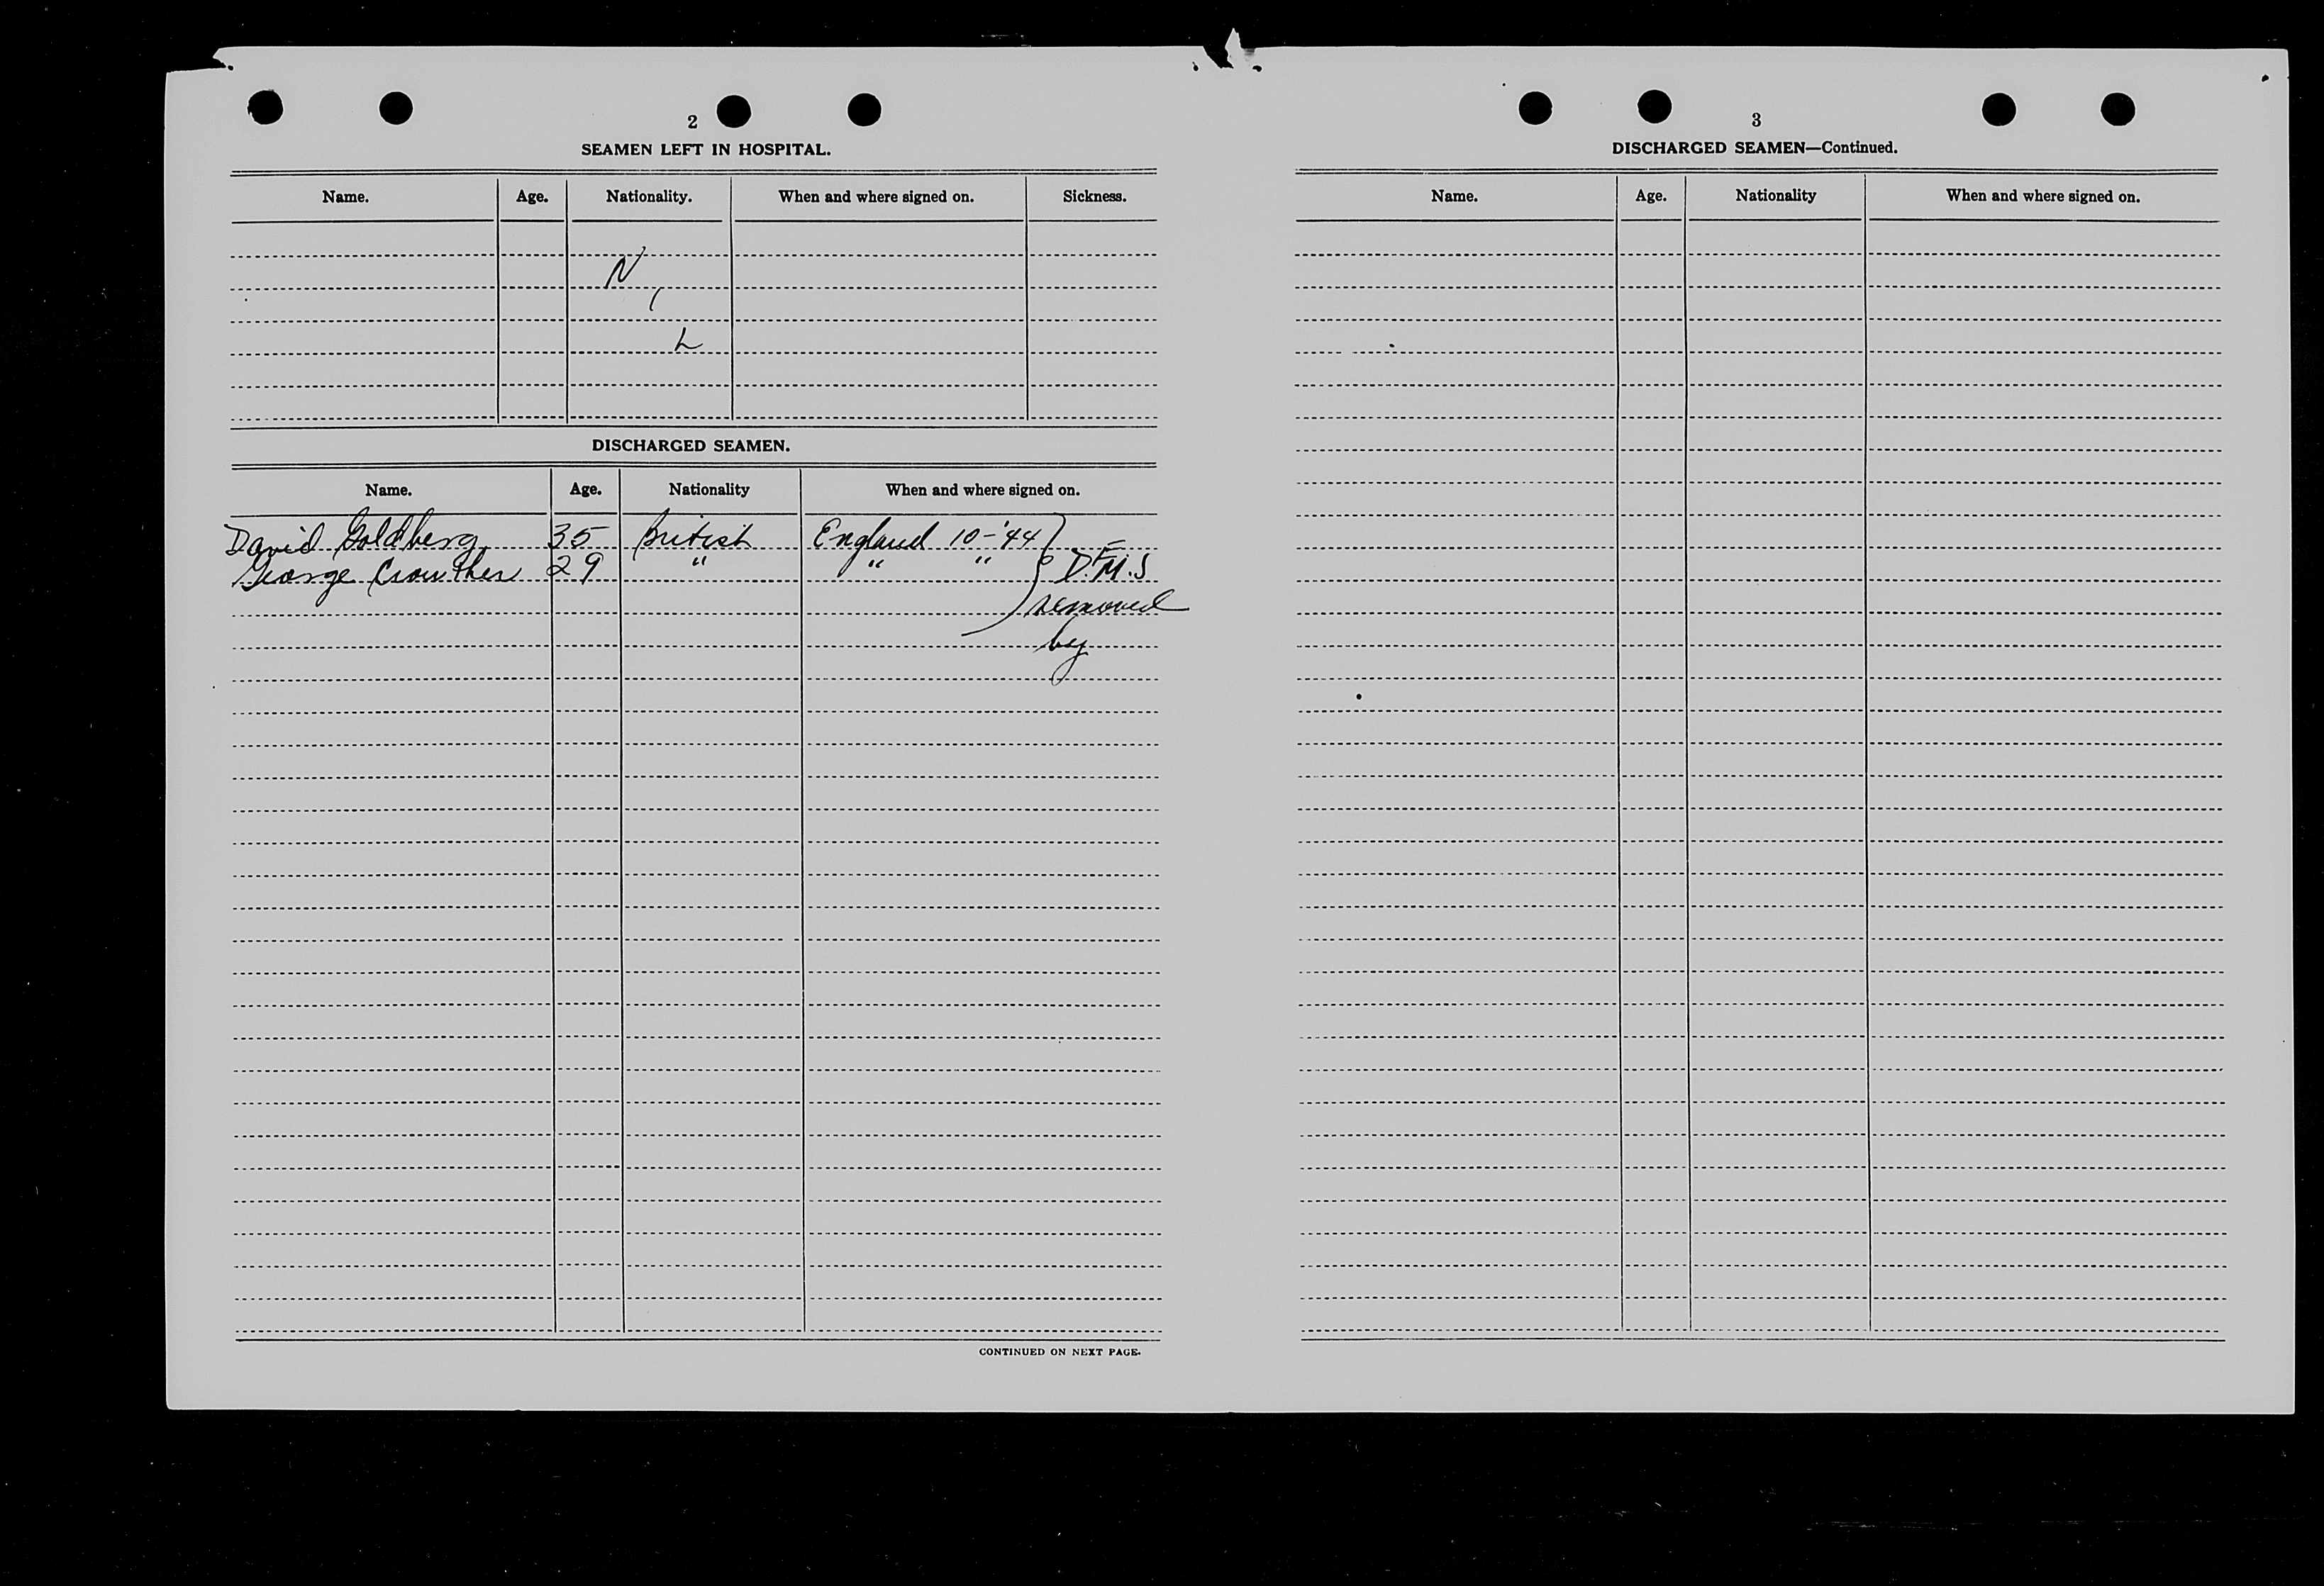 2
SEAMEN LEFT IN HOSPITAL.
Name. Age. Nationality. When and where signed on. Sickness.
N
I
L
DISCHARGED SEAMEN.
Name. Age. Nationality When and where signed on.
David Goldberg 35 British England 10-'44
George Crowther 29 " " " D.F.M.S
removed
by
CONTINUED ON NEXT PAGE.
3
DISCHARGED SEAMEN—Continued.
Name. Age. Nationality When and where signed on.